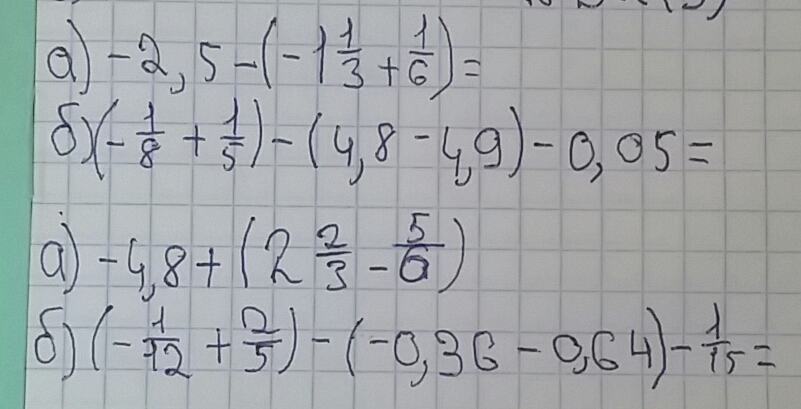 а) -2,5-(-1 1/3 + 1/6)=
б) (-1/8 + 1/5) - (4,8 - 4,9) - 0,05 =
а) -4,8 + (2 2/3 - 5/6)
б) (-1/12 + 2/5) - (-0,36 - 0,64) - 1/15 =